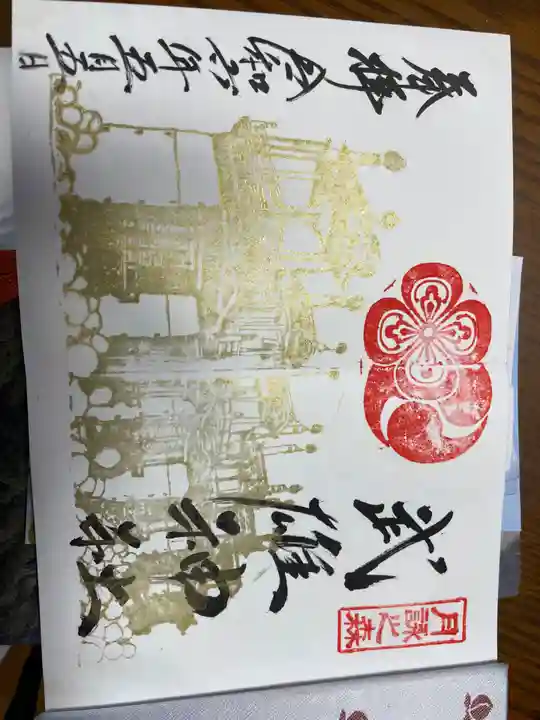 奉拝
令和六年五月五日
武雄神社
月詠之森